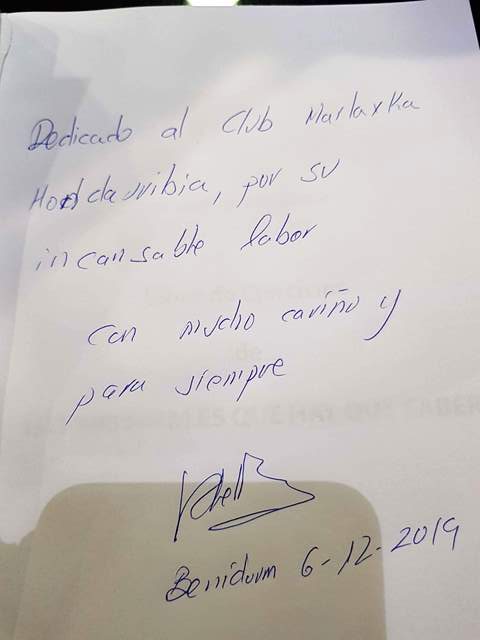 Dedicado al Club Marlaxka
Hondarribia, por su
incansable labor
con mucho cariño y
para siempre
Benidorm 6-12-2019